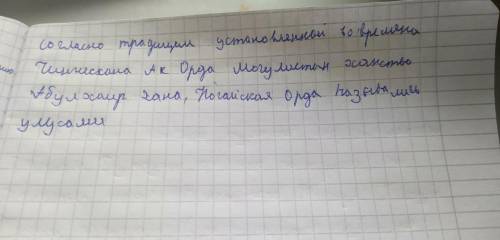 согласно традицием установленной во времена
Чингисхана Ак Орда Могулистан ханство
Абулхаир хана, Ногайская Орда назывались
улусами